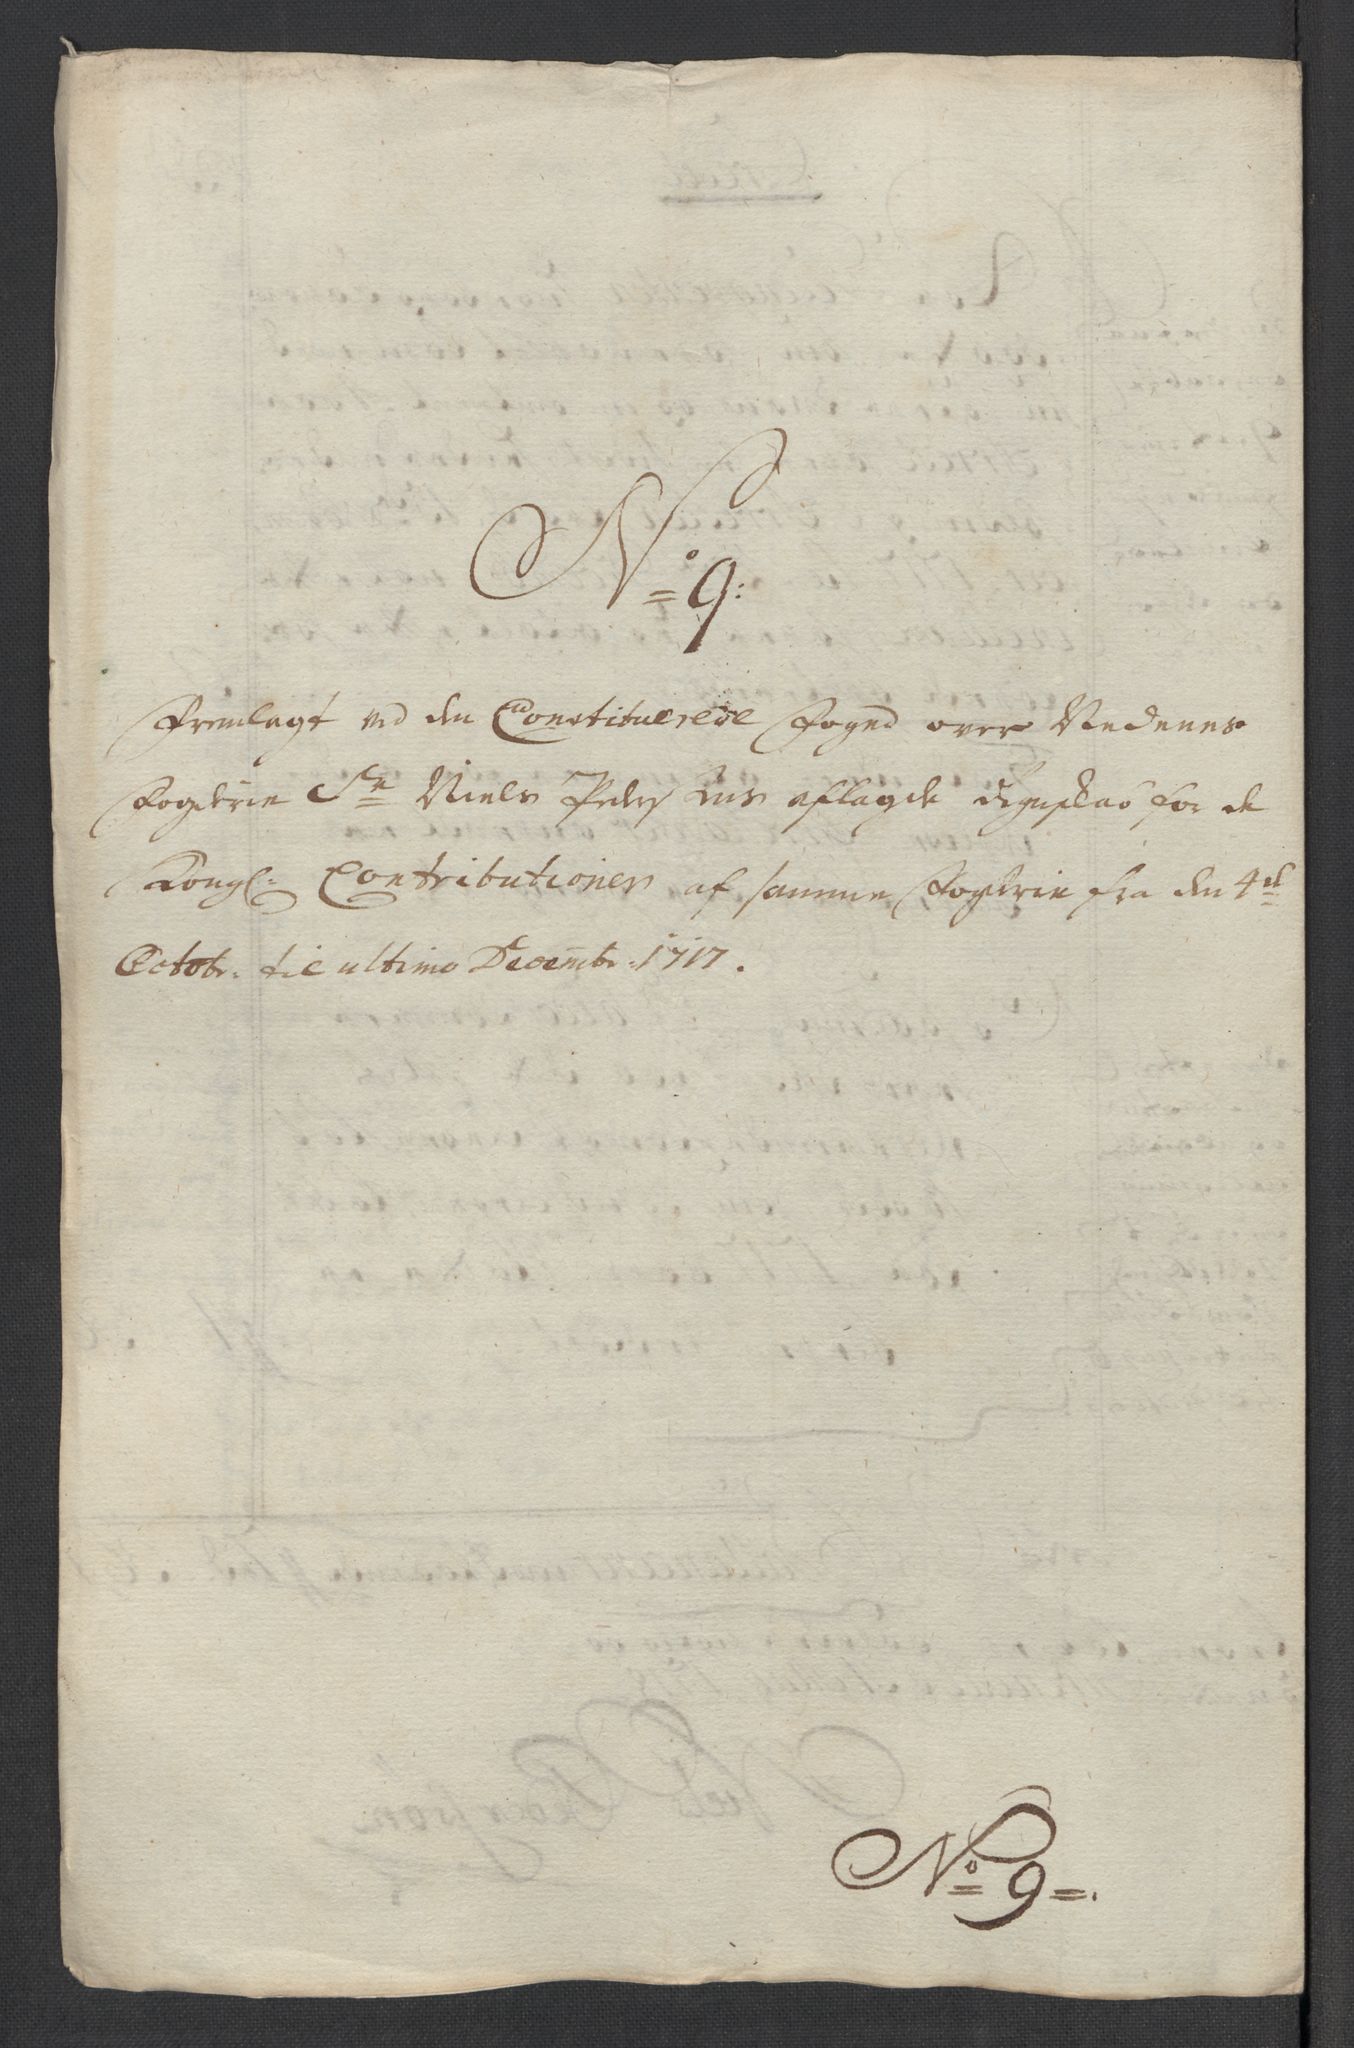 No 9:
Fremlagt ved den Constituerede Foged over Nedenes
Fogderie Sr Niels Peders aflagde Regnskab for de
Kongl: Contributioner af samme Fogderie fra den 4de
Octobr: til ultimo Decembr: 1717.
No 9